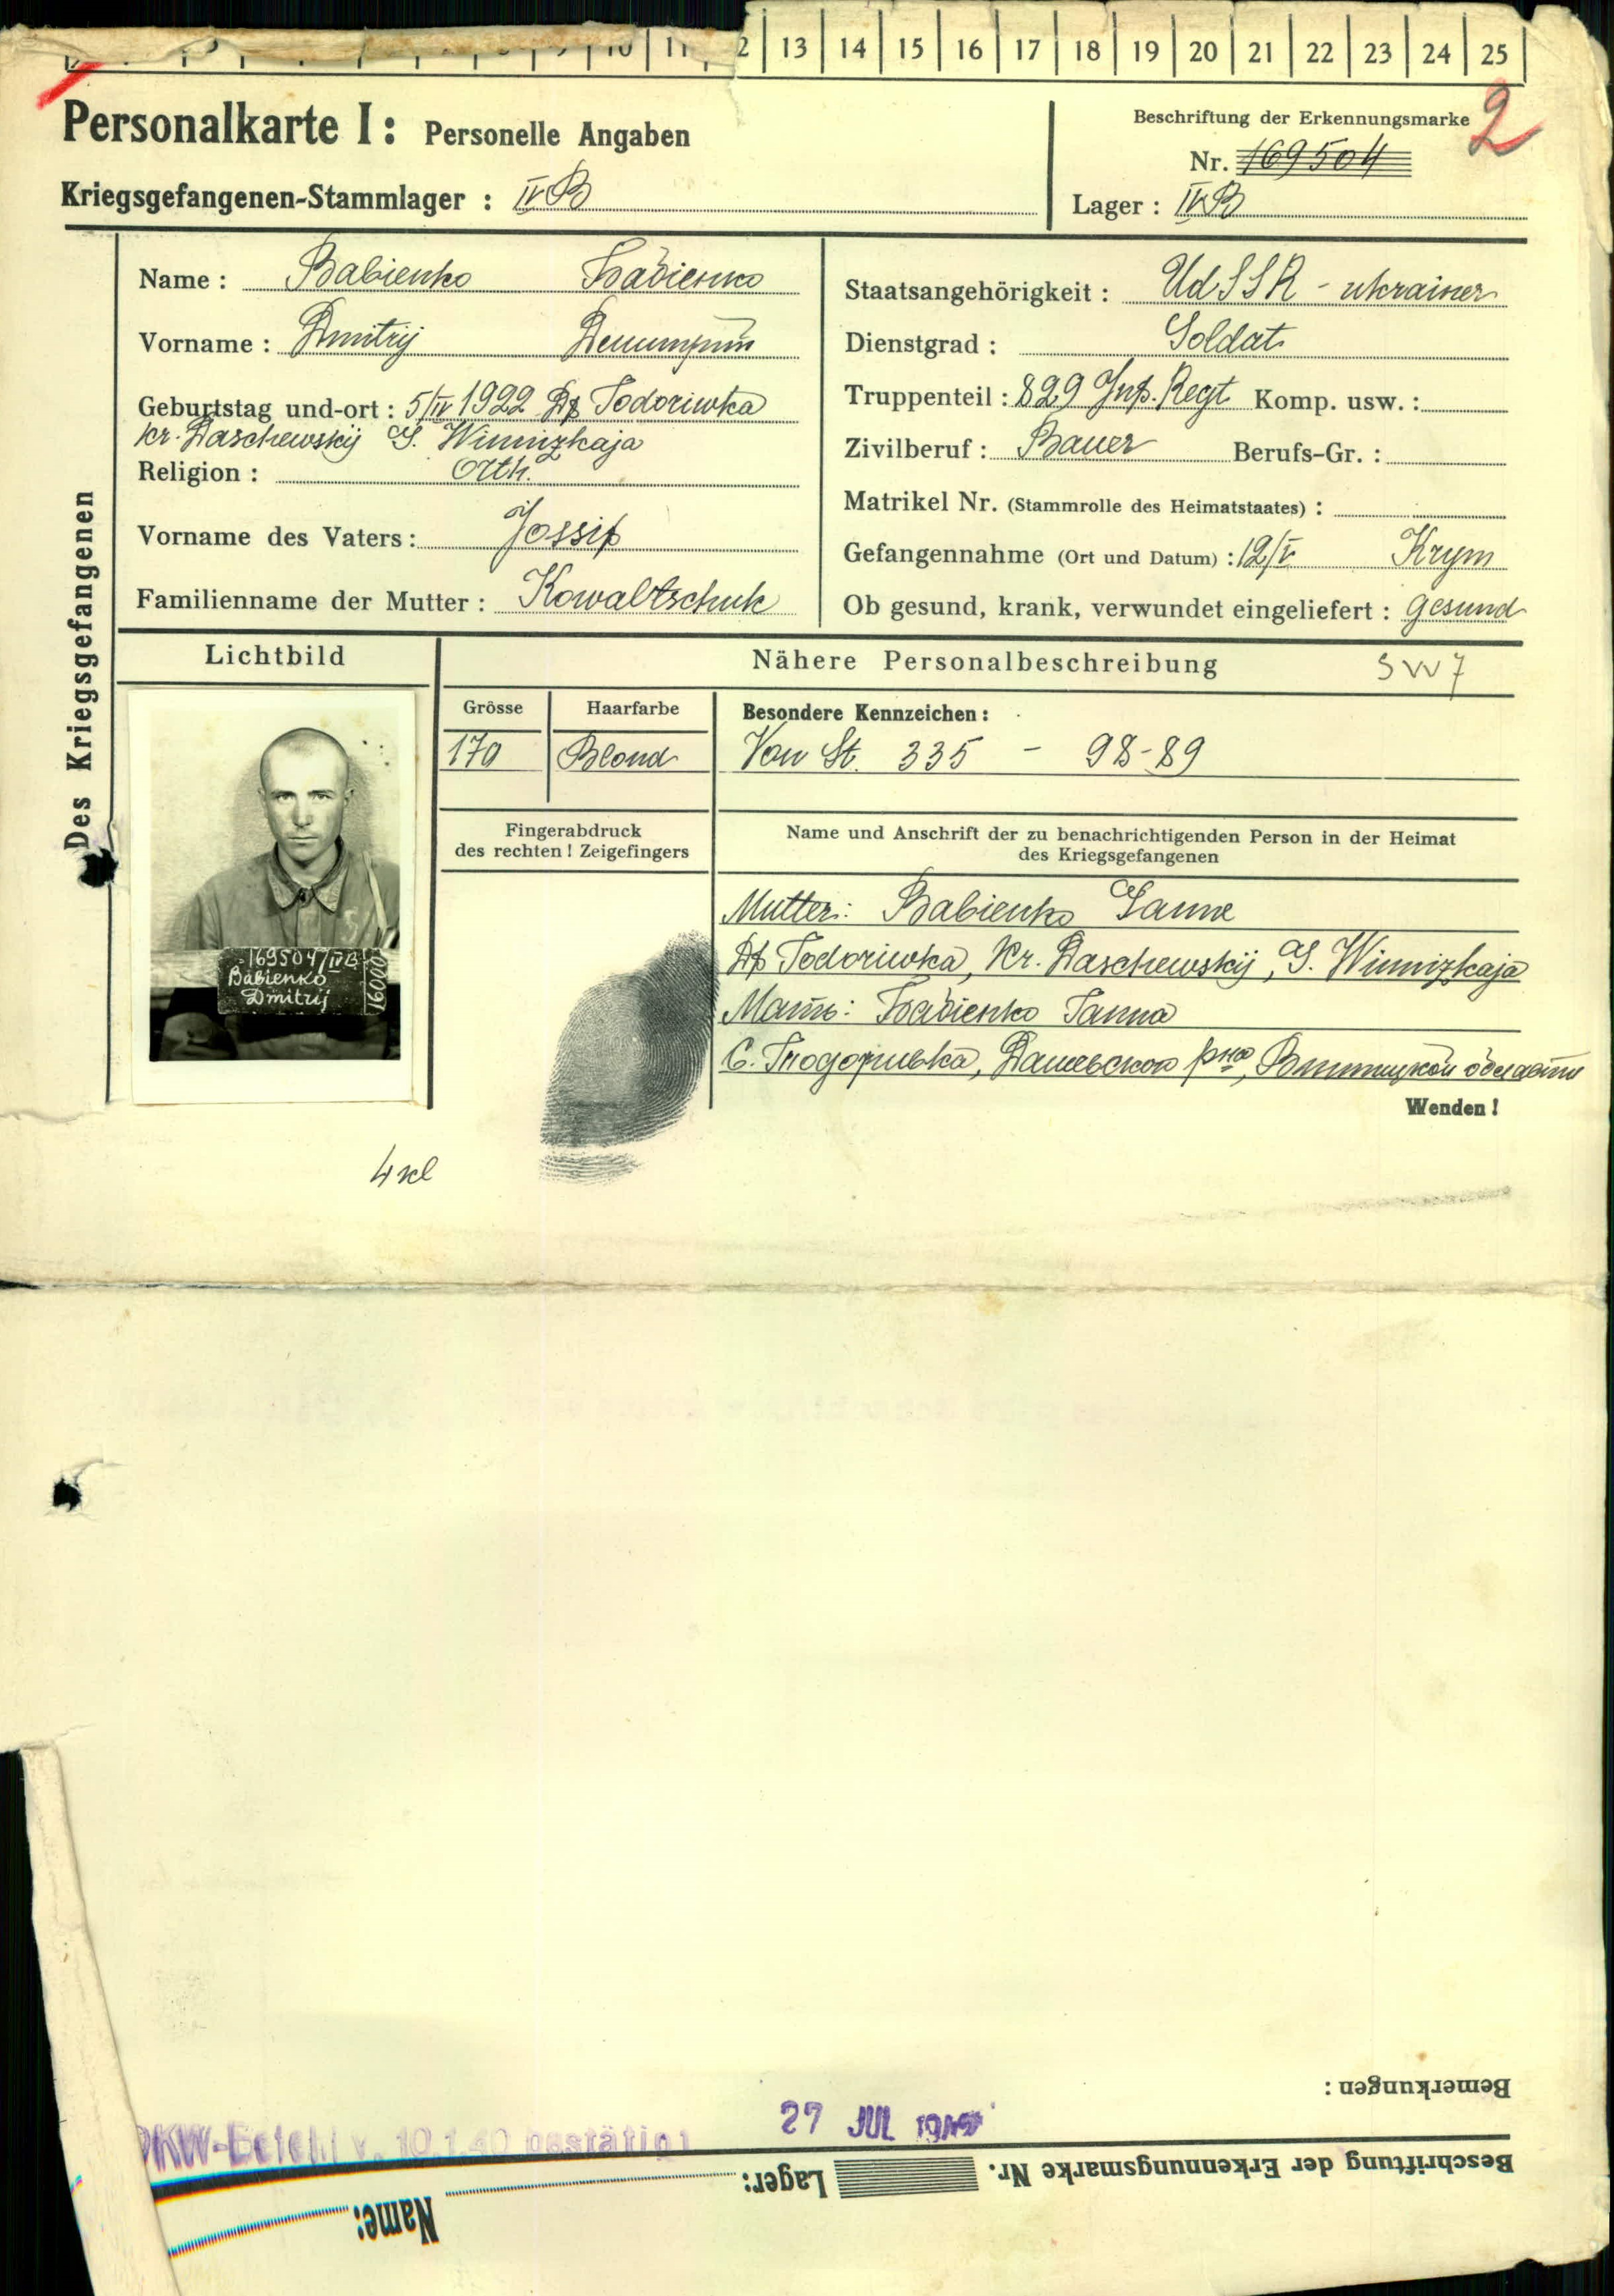 10 | 11 | 2 | 13 | 14 | 15 | 16 | 17 | 18 | 19 | 20 | 21 | 22 | 23 | 24 | 25
2
Personalkarte I: Personelle Angaben
Kriegsgefangenen-Stammlager: IV B
Beschriftung der Erkennungsmarke
Nr. 169504
Lager: IV B
Des Kriegsgefangenen
Name: Babienko Бабіенко
Vorname: Dmitrij Демитрій
Geburtstag und-ort: 5/IV 1922 Df Todoriwka
Kr. Daschewskij G. Winnizkaja
Religion: Orth.
Vorname des Vaters: Jossif
Familienname der Mutter: Kowaltschuk
Staatsangehörigkeit: UdSSR - ukrainer
Dienstgrad: Soldat
Truppenteil: 829 Inf. Regt Komp. usw.:
Zivilberuf: Bauer Berufs-Gr.:
Matrikel Nr. (Stammrolle des Heimatstaates):
Gefangennahme (Ort und Datum): 12/V Krym
Ob gesund, krank, verwundet eingeliefert: gesund
Lichtbild
169504/IV B
Babienko
Dmitrij
16000
Nähere Personalbeschreibung
Grösse
170
Haarfarbe
Blond
Besondere Kennzeichen:
Von St. 335 - 98-89
Fingerabdruck
des rechten! Zeigefingers
Name und Anschrift der zu benachrichtigenden Person in der Heimat
des Kriegsgefangenen
Mutter: Babienko Ganna
Df Todoriwka, Kr. Daschewskij, G. Winnizkaja
Мать: Бабіенко Ганна
С. Тподоривка, Дашевского рна, Винницкой области
Wenden!
4 kl
Bemerkungen:
27 JUL
OKW-Befehl v. 10.1.40 bestätigt
Beschriftung der Erkennungsmarke Nr.
Lager:
Name: